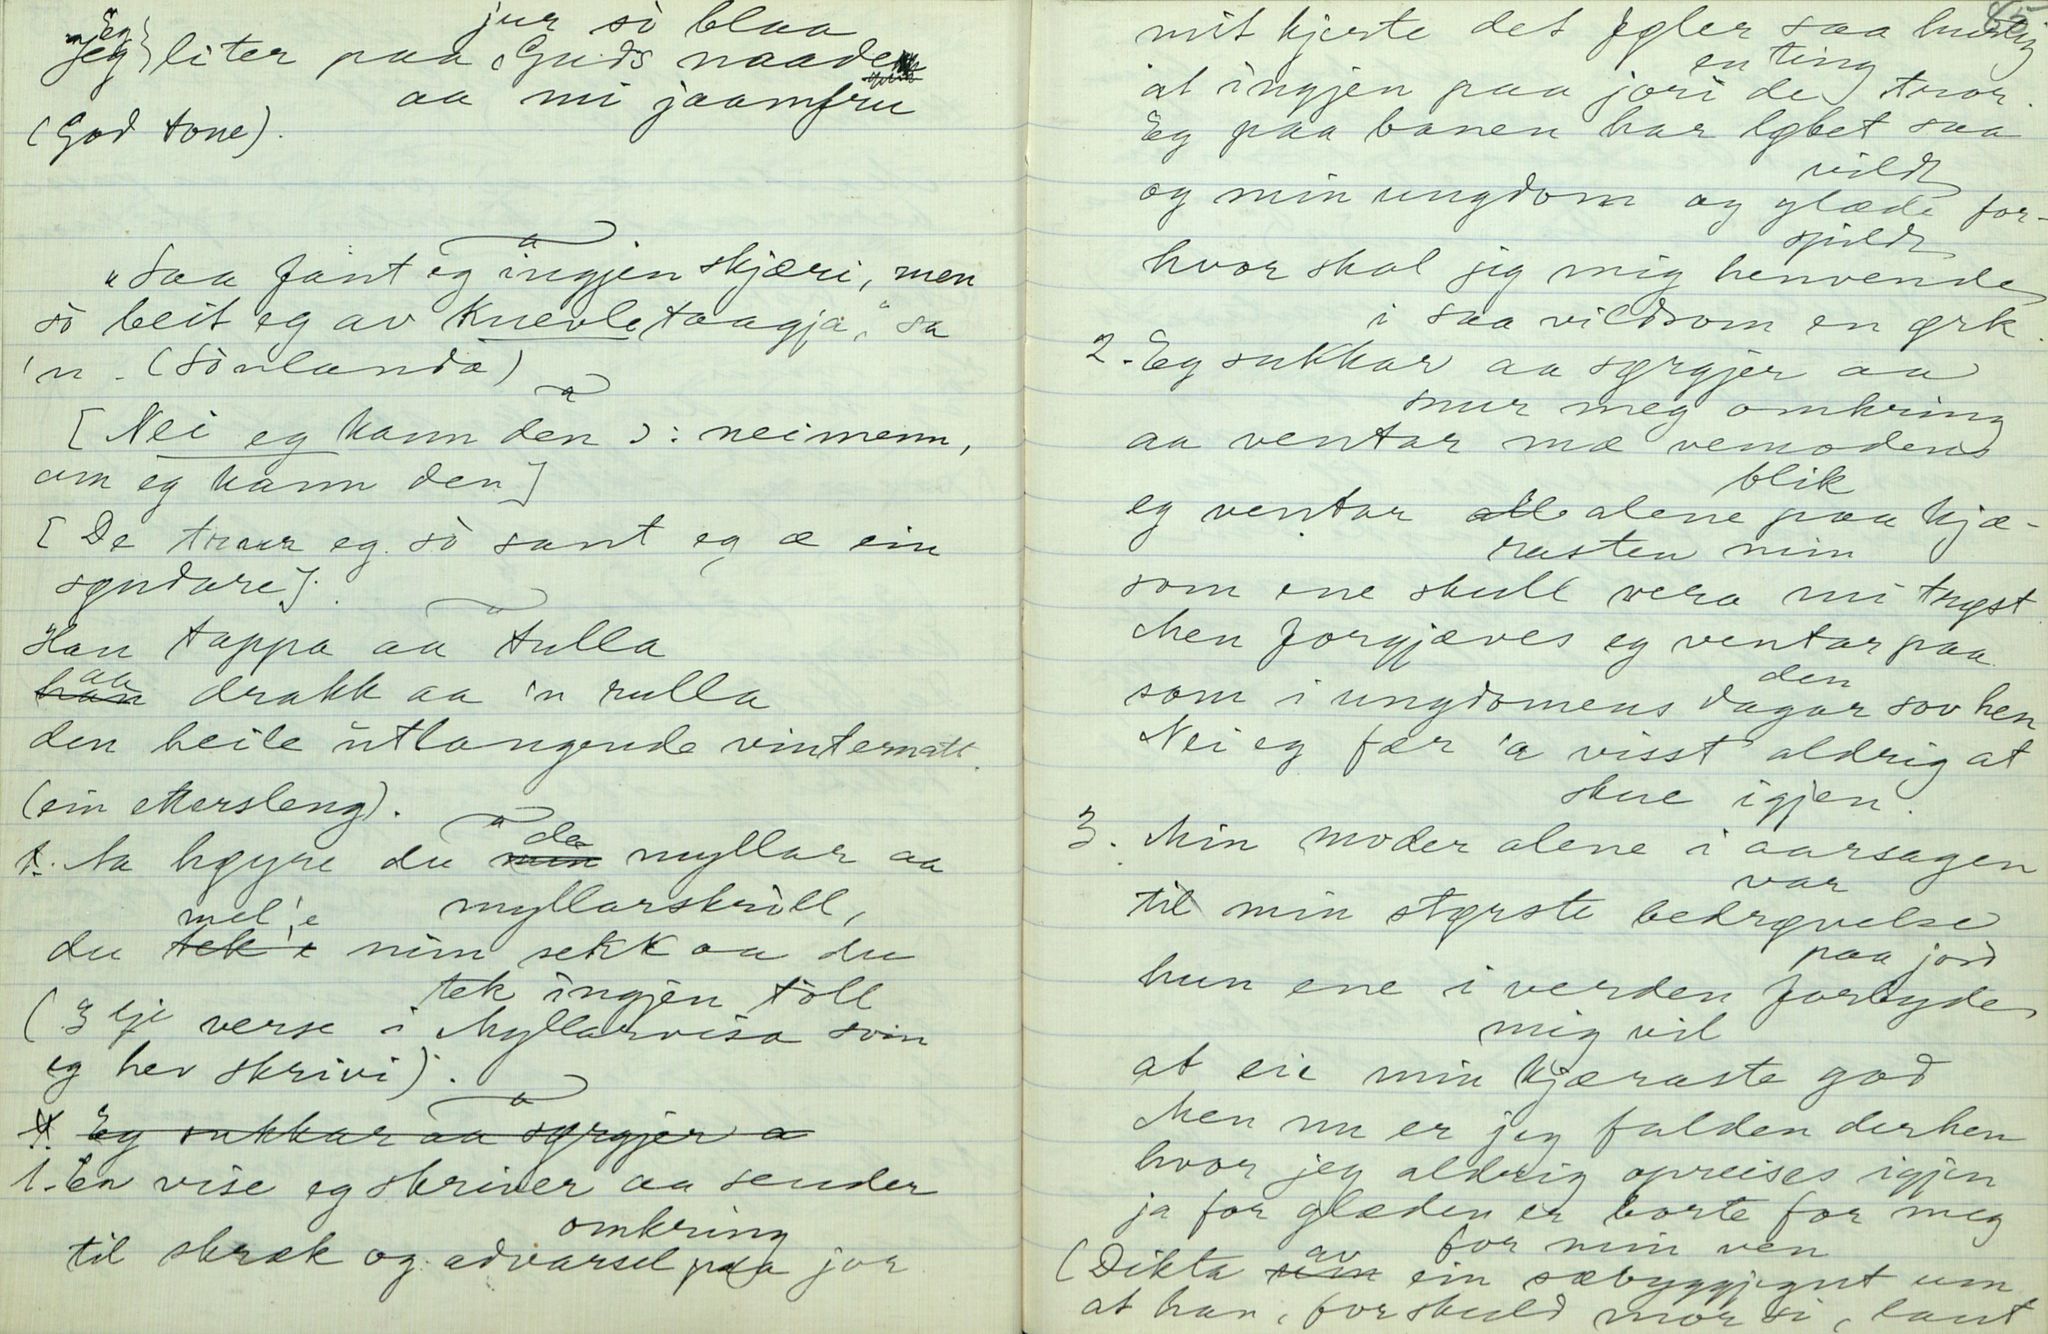 jur sò blaa
Eg
Jeg } liter paa Guds naade
aa mi jaamfru
(God tone).
"Saa fant eg ingjen skjæri, men
sò beit eg av knevletaagja," sa
'n. (Sònlanda)
[Nei eg kann den ɔ: neimenn,
om eg kann den]
[De truur eg sò sant eg æ ein
syndare].
Han tappa aa tulla
aa
han drakk aa 'n rulla
den heile ùtlangende vinternatt.
(ein ettersleng).
1. Aa høyre du min de myllar aa
myllarskròll,
mel'e
du tek'e min sekk aa du
tek ingjen tòll
(3 dje verse i Myllarvisa som
eg hev skrivi).
Eg sukkar aa sørgjer a
1. En vise eg skriver aa sender
omkring
til skræk og advarsel paa jor
mit hjerte det føler saa hurtig
en ting
at ingjen paa jori de tror.
Eg paa banen har løbet saa
vildt
og min ungdom og glæde for-
spildt
hvor skal jeg mig henvende
i saa vildsom en ørk.
2. Eg sukkar aa sørgjer aa
snur meg omkring
aa ventar mæ vemodens
blik
eg ventar alle alene paa kjæ-
rasten min
som ene skull vera mi trøst
Men forgjæves eg ventar paa
den
som i ungdomens dagar sov hen
Nei eg fær 'a visst aldrig at
skue igjen.
3. Min moder alene i aarsagen
var
til min største bedrøvelse
paa jord
hun ene i verden forbyde
mig vil
at eie min kjæraste god
Men nu er jeg falden derhen
hvor jeg aldrig opreises igjen
ja for glæden er borte for meg
for min ven
(Dikta av ein sæbyggjegut um
at han, for skuld mor si, laut